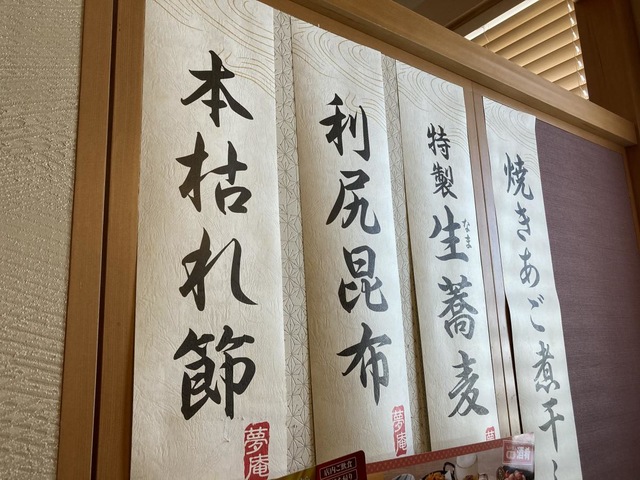 本枯れ節
夢庵
利尻昆布
夢庵
特製
生蕎麦
なま
焼きあご煮干し
店内ご飲食